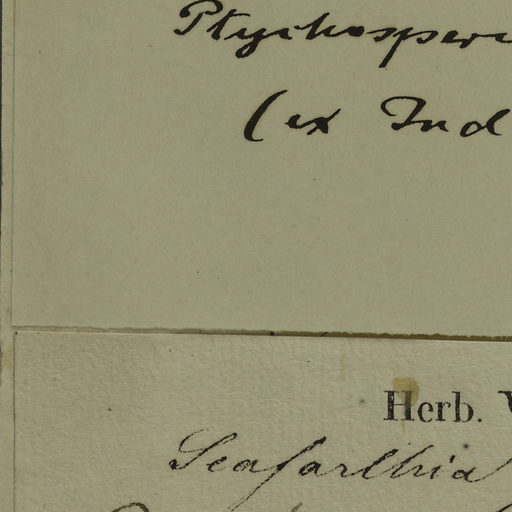 Ptychosper
(ex Ind
Herb.
Seaforthia